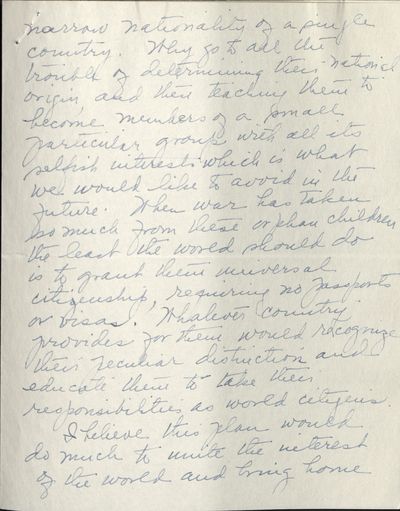 narrow nationality of a single
country. Why go to all the
trouble of determining their national
origin and then teaching them to
become members of a small
particular group with all its
selfish interests which is what
we would like to avoid in the
future. When war has taken
so much from these orphan children
the least the world should do
is to grant them universal
citizenship, requiring no passports
or visas. Whatever country
provides for them would recognize
their peculiar distinction and
educate them to take their
responsibilities as world citizens.
I believe this plan would
do much to unite the interest
of the world and bring home